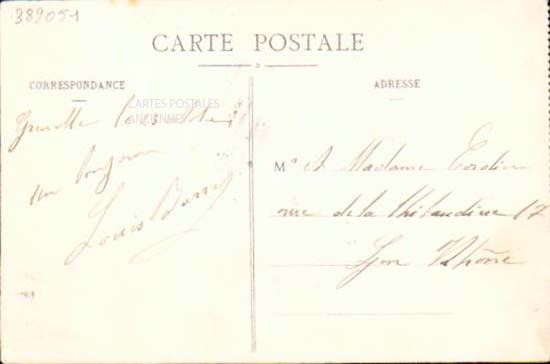 389051
CARTE POSTALE
CORRESPONDANCE
ADRESSE
CARTES POSTALES
ANCIENNES
Grenoble
un bonjour
Louis
M et Madame
rue de la Thibaudière 17
Lyon Rhône